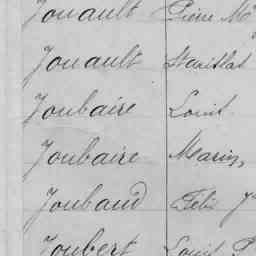 Jouault Pierre M
Jouault Stanislas
Joubaire Louis
Joubaire Marin,
Joubaud Félix J
Joubert Louis P